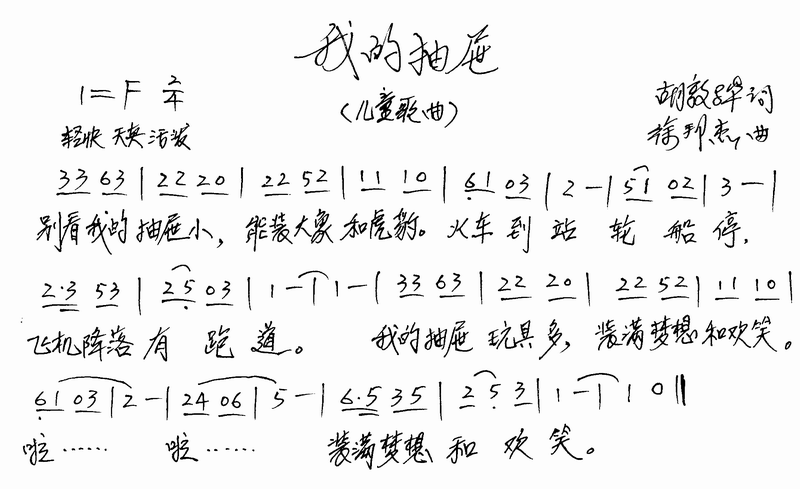 我的抽屉
(儿童歌曲)
1=F 2/4
轻快 天真 活泼
胡敦骅词
徐邦杰曲
33 63 | 22 20 | 22 52 | 11 10 | 61 03 | 2 - | 51 02 | 3 - |
别看我的抽屉小，能装大象和虎豹。火车到站轮船停，
2·3 53 | 25 03 | 1 - | 1 - | 33 63 | 22 20 | 22 52 | 11 10 |
飞机降落有跑道。 我的抽屉玩具多，装满梦想和欢笑。
61 03 | 2 - | 24 06 | 5 - | 6·5 35 | 2 5 3 | 1 - | 1 0 ‖
啦…… 啦…… 装满梦想和欢笑。